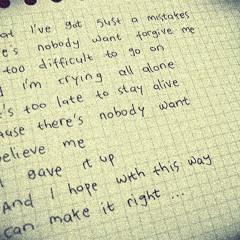 at I've got just a mistakes
e's nobody want forgive me
too difficult to go on
I'm crying all alone
's too late to stay alive
ause there's nobody want
believe me
I gave it up
And I hope with this way
can make it right ...